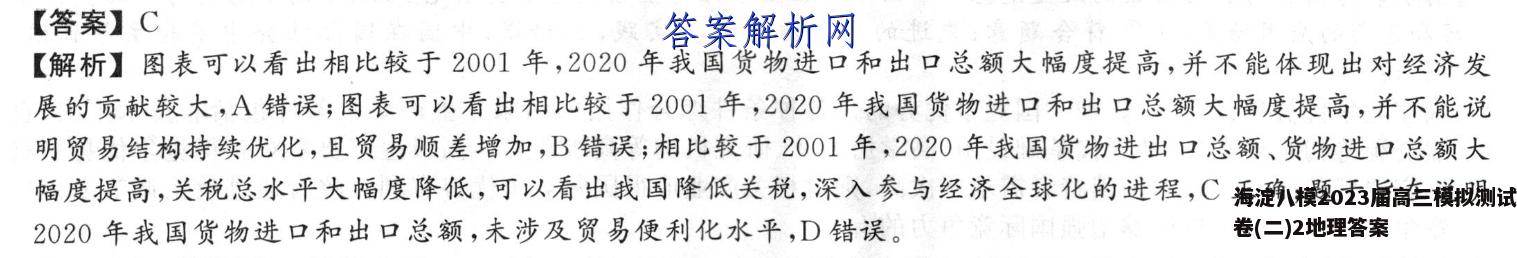 【答案】C
答案解析网
【解析】图表可以看出相比较于 2001 年,2020 年我国货物进口和出口总额大幅度提高,并不能体现出对经济发
展的贡献较大,A 错误;图表可以看出相比较于 2001 年,2020 年我国货物进口和出口总额大幅度提高,并不能说
明贸易结构持续优化,且贸易顺差增加,B 错误;相比较于 2001 年,2020 年我国货物进出口总额、货物进口总额大
幅度提高,关税总水平大幅度降低,可以看出我国降低关税,深入参与经济全球化的进程,C
海淀八模2023届高三模拟测试
卷(二)2地理答案
2020 年我国货物进口和出口总额,未涉及贸易便利化水平,D 错误。